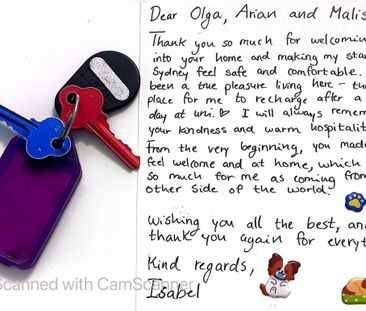 Dear Olga, Arian and Malis
Thank you so much for welcomin
into your home and making my sta
Sydney feel safe and comfortable.
been a true pleasure living here - the
place for me to recharge after a
day at uni. I will always remem
your kindness and warm hospitalit
From the very beginning, you made
feel welcome and at home, which
so much for me as coming from
other side of the world.
Wishing you all the best, and
thank you again for everyt
Kind regards,
Scanned with CamScanner
Isabel